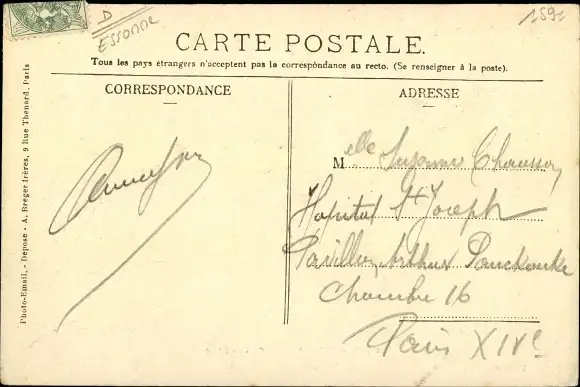 D
ESSONNE
189
CARTE POSTALE.
Tous les pays étrangers n'acceptent pas la correspondance au recto. (Se renseigner à la poste).
CORRESPONDANCE
ADRESSE
Photo-Email, - Déposé - A. Breger frères, 9 Rue Thenard, Paris
Melle Suzanne
Hopital St Joseph
Pavillon Arthur Panckouke
Chambre 16
Paris XIVe